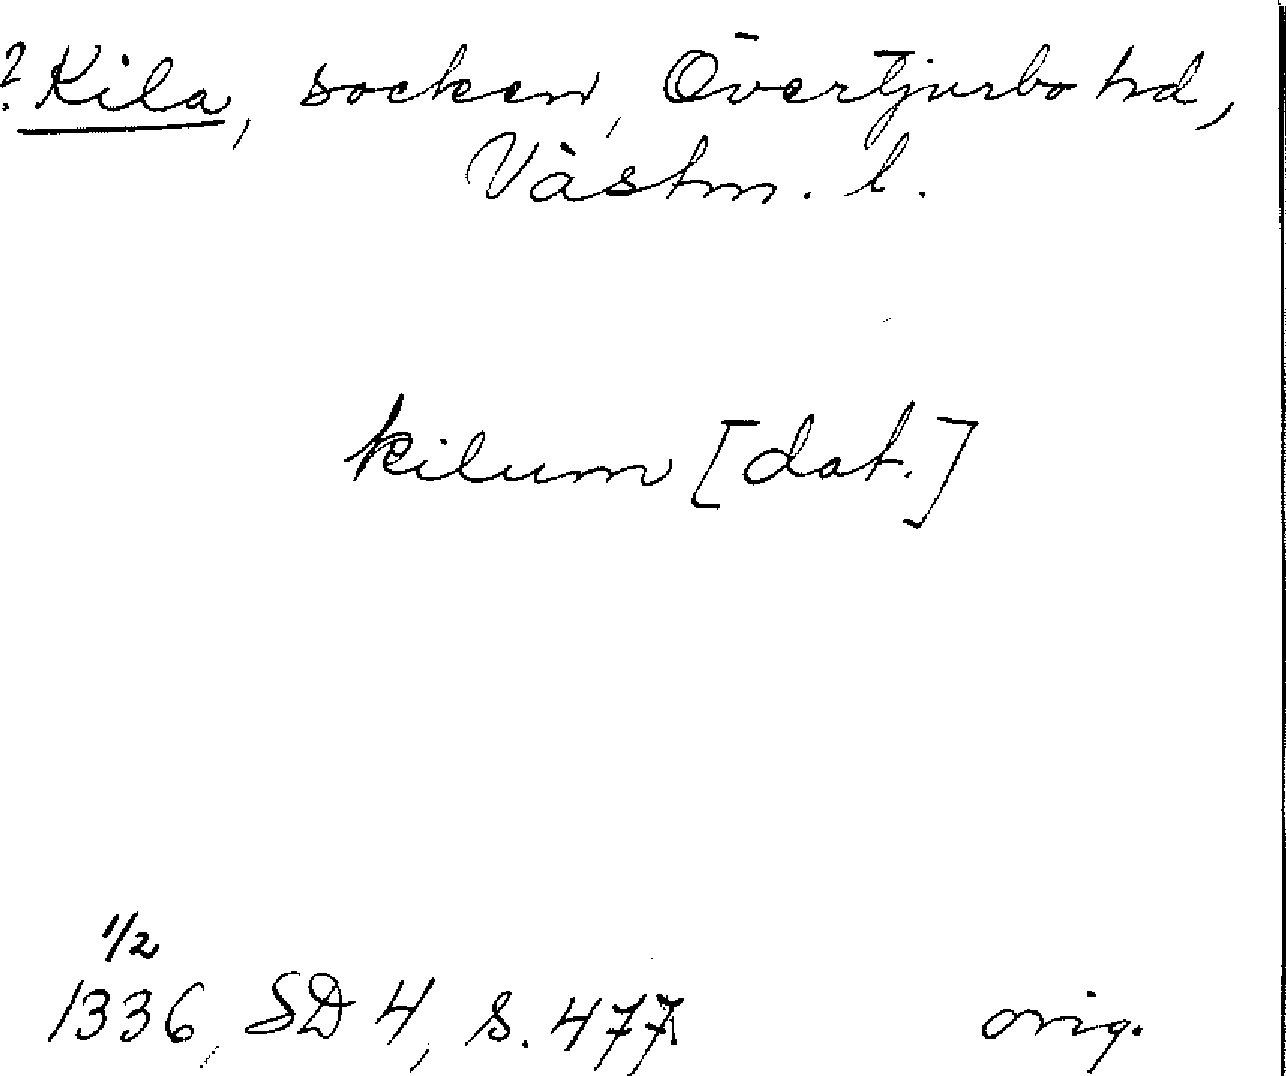 ? Kila, socken, Övertjurbo hd,
Västm. l.
kilum [dat.]
1/2
1336, SD 4, s. 477 orig.